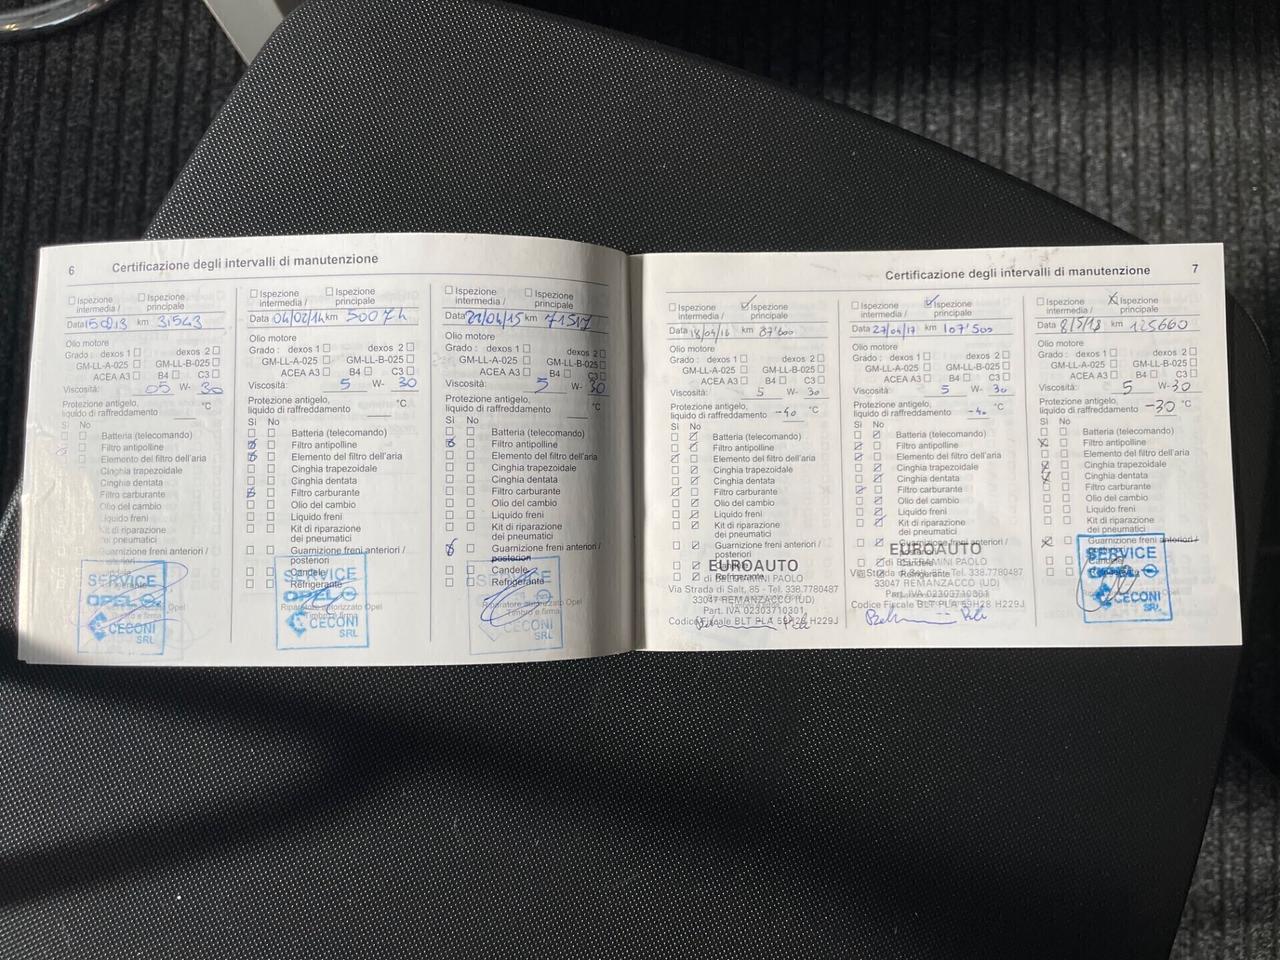 6 Certificazione degli intervalli di manutenzione
Ispezione intermedia /
Ispezione principale
Data 15 03 13 km 31543
Olio motore
Grado: dexos 1 dexos 2
GM-LL-A-025 GM-LL-B-025
ACEA A3 B4 C3
Viscosità: 05 W- 30
Protezione antigelo,
liquido di raffreddamento °C
Sì No
Batteria (telecomando)
Filtro antipolline
Elemento del filtro dell'aria
Cinghia trapezoidale
Cinghia dentata
Filtro carburante
Olio del cambio
Liquido freni
Kit di riparazione
dei pneumatici
Guarnizione freni anteriori /
SERVICE
OPEL
CECONI
SRL
Ispezione intermedia /
Ispezione principale
Data 04/02/14 km 50074
Olio motore
Grado: dexos 1 dexos 2
GM-LL-A-025 GM-LL-B-025
ACEA A3 B4 C3
Viscosità: 5 W- 30
Protezione antigelo,
liquido di raffreddamento °C
Sì No
Batteria (telecomando)
Filtro antipolline
Elemento del filtro dell'aria
Cinghia trapezoidale
Cinghia dentata
Filtro carburante
Olio del cambio
Liquido freni
Kit di riparazione
dei pneumatici
Guarnizione freni anteriori /
posteriori
Candele
Refrigerante
Riparatore autorizzato Opel
Timbro e firma
SERVICE
OPEL
CECONI
SRL
Ispezione intermedia /
Ispezione principale
Data 22/04/15 km 71517
Olio motore
Grado: dexos 1 dexos 2
GM-LL-A-025 GM-LL-B-025
ACEA A3 B4 C3
Viscosità: 5 W- 30
Protezione antigelo,
liquido di raffreddamento °C
Sì No
Batteria (telecomando)
Filtro antipolline
Elemento del filtro dell'aria
Cinghia trapezoidale
Cinghia dentata
Filtro carburante
Olio del cambio
Liquido freni
Kit di riparazione
dei pneumatici
Guarnizione freni anteriori /
posteriori
Candele
Refrigerante
Riparatore autorizzato Opel
Timbro e firma
SERVICE
CECONI
SRL
Certificazione degli intervalli di manutenzione 7
Ispezione intermedia /
Ispezione principale
Data 18/04/16 km 87'600
Olio motore
Grado: dexos 1 dexos 2
GM-LL-A-025 GM-LL-B-025
ACEA A3 B4 C3
Viscosità: 5 W- 30
Protezione antigelo,
liquido di raffreddamento -40 °C
Sì No
Batteria (telecomando)
Filtro antipolline
Elemento del filtro dell'aria
Cinghia trapezoidale
Cinghia dentata
Filtro carburante
Olio del cambio
Liquido freni
Kit di riparazione
dei pneumatici
Guarnizione freni anteriori /
posteriori
Candele
Refrigerante
EUROAUTO
di BELTRAMINI PAOLO
Via Strada di Salt, 85 - Tel. 338.7780487
33047 REMANZACCO (UD)
Part. IVA 02303710301
Codice Fiscale BLT PLA 59H28 H229J
Ispezione intermedia /
Ispezione principale
Data 27/04/17 km 107'500
Olio motore
Grado: dexos 1 dexos 2
GM-LL-A-025 GM-LL-B-025
ACEA A3 B4 C3
Viscosità: 5 W- 30
Protezione antigelo,
liquido di raffreddamento -40 °C
Sì No
Batteria (telecomando)
Filtro antipolline
Elemento del filtro dell'aria
Cinghia trapezoidale
Cinghia dentata
Filtro carburante
Olio del cambio
Liquido freni
Kit di riparazione
dei pneumatici
Guarnizione freni anteriori /
Candele
Refrigerante
EUROAUTO
di BELTRAMINI PAOLO
Via Strada di Salt, 85 - Tel. 338.7780487
33047 REMANZACCO (UD)
Part. IVA 02303710301
Codice Fiscale BLT PLA 59H28 H229J
Ispezione intermedia /
Ispezione principale
Data 8/5/18 km 125660
Olio motore
Grado: dexos 1 dexos 2
GM-LL-A-025 GM-LL-B-025
ACEA A3 B4 C3
Viscosità: 5 W- 30
Protezione antigelo,
liquido di raffreddamento -30 °C
Sì No
Batteria (telecomando)
Filtro antipolline
Elemento del filtro dell'aria
Cinghia trapezoidale
Cinghia dentata
Filtro carburante
Olio del cambio
Liquido freni
Kit di riparazione
dei pneumatici
Guarnizione freni anteriori /
SERVICE
OPEL
CECONI
SRL